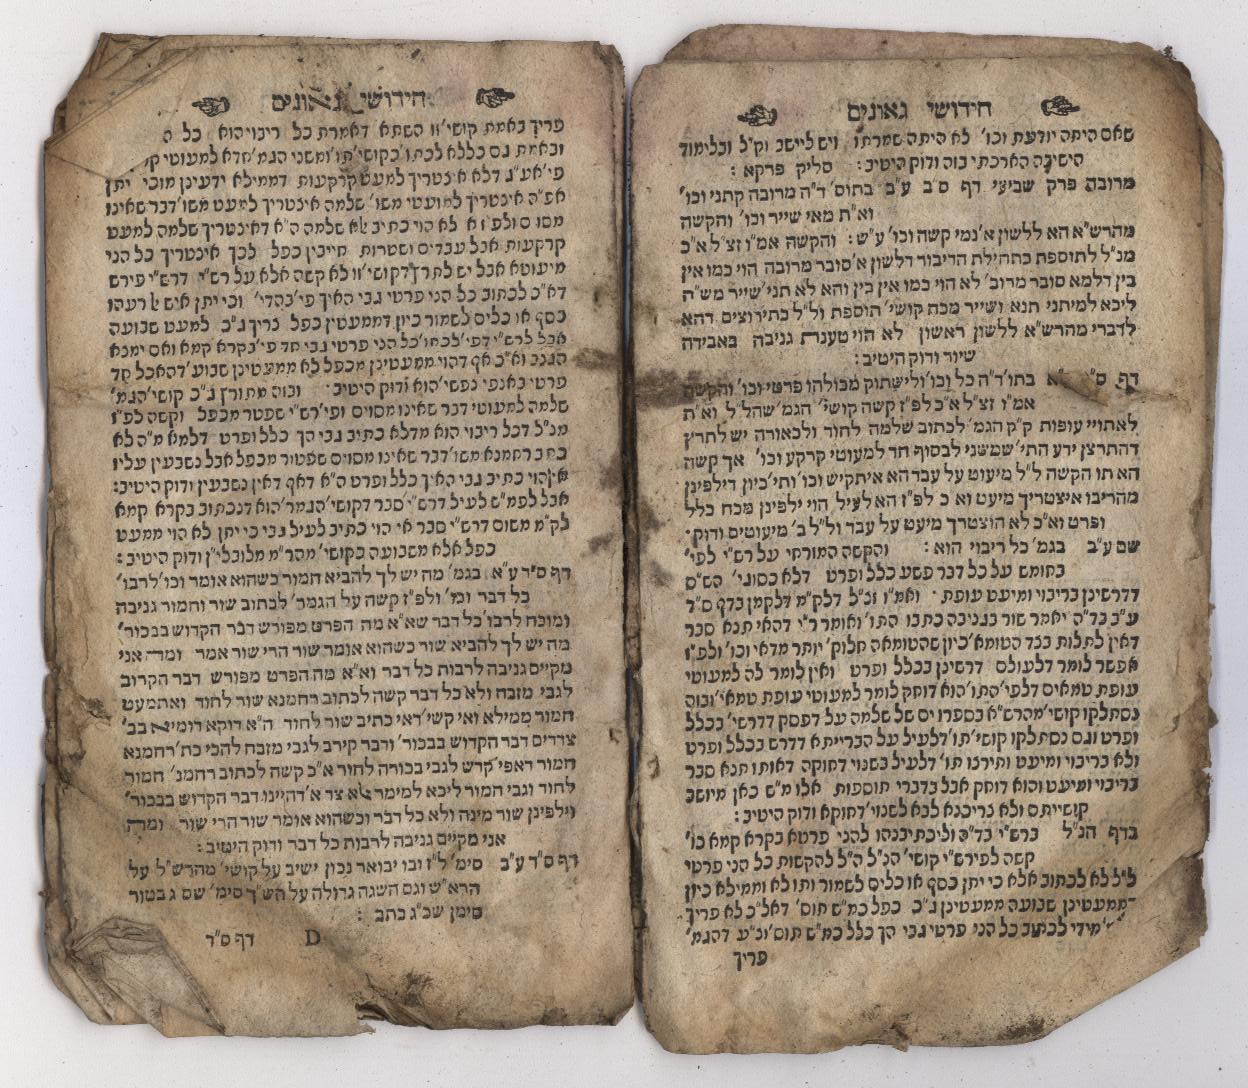 חידושי גאונים
שאם היתה יודעת וכו' לא היתה שמרתו ויש ליישב וק"ל ובלימוד
הישיבה הארכתי בזה ודוק היטיב: סליק פרקא:
מרובה פרק שביעי דף ס"ב ע"ב בתוס' ד"ה מרובה קתני וכו'
וא"ת מאי שייר וכו' והקשה
מהרש"א הא ללשון א' נמי קשה וכו' ע"ש: והקשה אמ"ו זצ"ל א"כ
מנ"ל לתוספת בתחילת הדיבור דלשון א' סובר מרובה הוי כמו אין
בין דלמא סובר מרוב' לא הוי כמו אין בין והא לא תני' שייר מש"ה
ליכא למיתני תנא ושייר מכח קושי' תוספת ול"ל בתירוצים דהא
לדברי מהרש"א ללשון ראשון לא הוי טענרת גניבה באבידה
שיור ודוק היטיב:
דף בתו' ד"ה כל וכו' ולישתוק מכולהו פרטי וכו' והקשה
אמ"ו זצ"ל א"כ לפ"ז קשה קושי' הגמ' שהל"ל וא"ת
לאתויי עופות ק"ק הגמ' לכתוב שלמה לחוד ולכאורה יש לתרץ
דהתרצן ידע התי' שמשני לבסוף חד למעוטי קרקע וכו' אך קשה
הא תו הקשה ל"ל מיעוט על עבד הא איתקיש וכו' ותי' כיון דילפינן
מהריבו איצטריך מיעט וא"כ לפ"ז הא לעיל הוי ילפינן מכח כלל
ופרט וא"כ לא הוצטרך מיעט על עבד ול"ל ב' מיעוטים ודוק
שם ע"ב בגמ' כל ריבוי הוא: והקשה המזרחי על רש"י לפי'
בחומש על כל דבר פשע כלל ופרט דלא כסוגי' הש"ס
דדרשינן בריבוי ומיעט עופת ואמ"ו זצ"ל דלק"מ דלקמן בדף ס"ד
ע"ב בד"ה יאמר שור בגניבה כתבו התו' ואומר ר"י דהאי תנא סבר
דאין לתלות בגד הטומא' כיון שהטומאה חלוק' יותר מדאי וכו' ולפ"ז
אפשר לומר דלעולם דרשינן בכלל ופרט ואין לומר לה למעוטי
עופת טמאים דלפי' התו' הוא דוחק לומר למעוטי עופת טמאי' ובזה
נסתלקו קושי' מהרש"א בספרו ים של שלמה על דפסק דדרשי' בכלל
ופרט וגם נסתלקו קושי' תו' דלעיל על הברייתא דדרש בכלל ופרט
ולא בריבוי ומיעט ותירצו תו' דלעיל בשנוי דחוקה דאותו תנא סבר
בריבוי ומיעט והוא דוחק אבל בדברי תוספות אלו מ"ש כאן מיושב
קושייתם ולא צריכנא לבא לשנוי דחוקא ודוק היטיב:
בדף הנ"ל ברש"י בד"ה וליכתיבנהו להני פרטא בקרא קמא כו'
קשה לפירש"י קושי' הנ"ל ה"ל להקשות כל הני פרטי
ל"ל לא לכתוב אלא כי יתן כסף או כלים לשמור ותו לא וממילא כיון
דממעטינן שבועה ממעטינן נ"כ כפל כמ"ש תוס' דאל"כ לא פריך
מידי לכתוב כל הני פרטי גבי הך כלל כמ"ש תוס' וצ"ע דהגמ'
פריך
חידושי גאונים
פריך באמת קושי' זו השתא דאמרת כל ריבוי הוא כל ה
ובאמת גם כללא לכתו' בקושי' תו' ומשני הגמ' חדא למעוטי ק
פי' אע"ג דלא אינטריך למעט קרקעות דממילא ידעינן מוכי יתן
אפ"ה אינטריך למועטי משו' שלמה אינטריך למעט משו' דבר שאינו
מסוים ולפ"ז א לא הוי כתיב לא שלמה ה"א דאינטריך שלמה למעט
קרקעות אבל עבדים ושטרות חייבין כפל לכך אינטריך כל הני
מיעוטא אבל יש לתרץ דקושי' זו לא קשה אלא על רש"י דרש"י פירש
דא"כ לכתוב כל הני פרטי גבי האיך פי' בהדי' וכי יתן איש אל רעהו
כסף או כלים לשמור כיון דממעטין כפל נריך נ"כ למעט שבועה
אבל לרש"י דפי' לכתו' כל הני פרטי גבי חד פי' בקרא קמא ואם ימנא
הגנב וא"כ אף דהוי ממעטינן מכפל לא ממעטינן שבוע' דהאכל חד
פרטי באנפי נפשי' הוא ודוק היטיב ובזה מתורץ נ"כ קושי' הגמ'
שלמה למעוטי דבר שאינו מסוים ופי' רש"י שפטר מכפל וקשה לפ"ז
מנ"ל דכל ריבוי הוא מדלא כתיב גבי הך כלל ופרט דלמא מ"ה לא
כתב רחמנא משו' דבר שאינו מסוים שפטור מכפל אבל נשבעין עליו
אין הוי כתיב גבי האיך כלל ופרט ה"א דאף דאין נשבעין ודוק היטיב:
אבל לפמ"ש לעיל דרש"י סבר דקושי' הגמר' הוא דנכתוב בקרא קמא
לק"מ משום דרש"י סבר אי הוי כתיב לעיל גבי כי יתן לא הוי ממעט
כפל אלא משבועה בקושי' מהר"מ מלובלי"ן ודוק היטיב:
דף ס"ד ע"א בגמ' מה יש לך להביא חמור כשהוא אומר וכו' לרבו'
כל דבר וכו' ולפ"ז קשה על הגמר' לכתוב שור וחמור גניבה
ומוכח לרבו' כל דבר שא"א מה הפרט מפורש דבר הקדוש בבכור'
מה יש לך להביא שור כשהוא אומר שור הרי שור אמר ומה אני
מקיים גניבה לרבות כל דבר וא"א מה הפרט מפורש דבר הקרוב
לגבי מזבח ולא כל דבר קשה לכתוב רחמנא שור לחוד ואתמעט
חמור ממילא ואי קשי' ראי כתיב שור לחוד ה"א דוקא דומיא בב'
צדדים דבר הקדוש בבכור' ודבר קירב לגבי מזבח להכי כת' רחמנא
חמור דאפי' קדש לגבי בכורה לחוד א"כ קשה לכתוב רחמנ' חמור
לחוד וגבי חמור ליכא למימר אלא צד א' דהיינו דבר הקדוש בבכור'
וילפינן שור מינה ולא כל דבר וכשהוא אומר שור הרי שור ומרה
אני מקיים גניבה לרבות כל דבר ודוק היטיב:
דף ס"ד ע"ב סימ' ל"ז ובו יבואר נכון ישיב על קושי' מהרש"ל על
הרא"ש וגם השגה גדולה על הש"ך סימ' שס ג בטור
סימן שכ"ג כתב:
D דף ס"ד